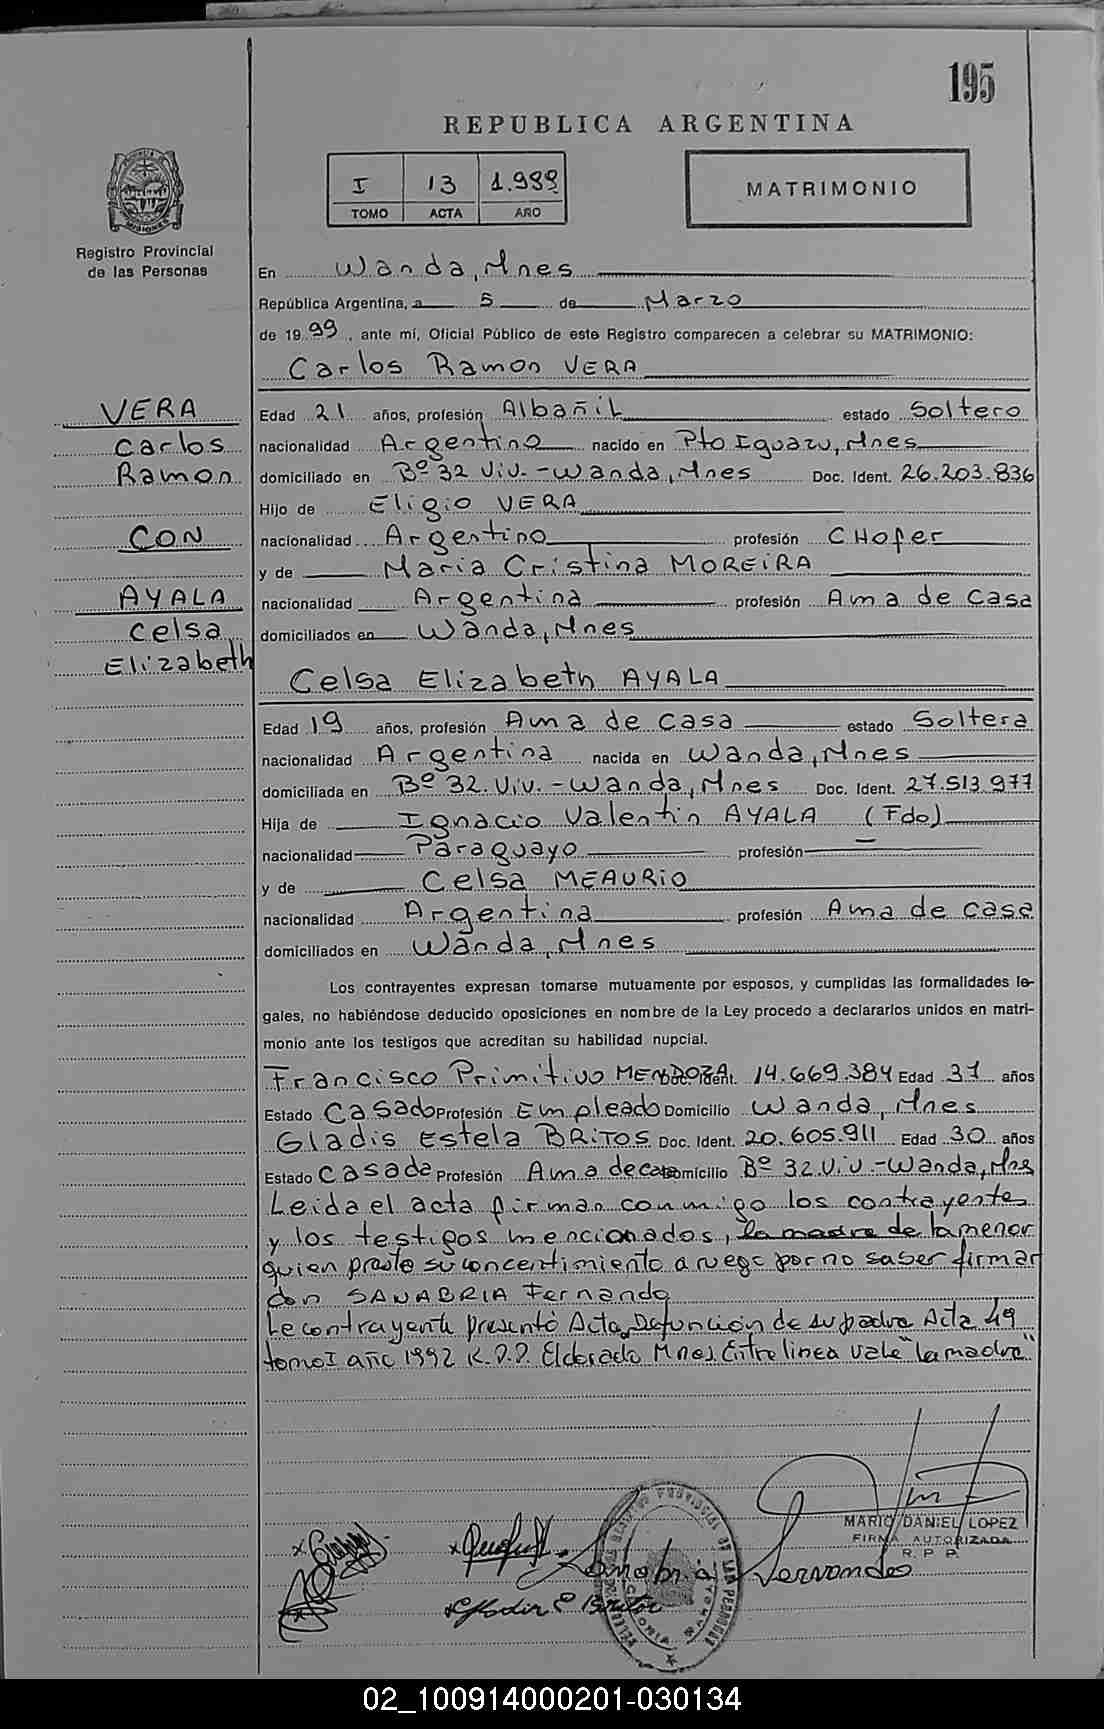 195
REPUBLICA ARGENTINA
I 13 1.999
TOMO ACTA AÑO
MATRIMONIO
Registro Provincial
de las Personas
En Wanda, Mnes
República Argentina, a 5 de Marzo
de 1999, ante mí, Oficial Público de este Registro comparecen a celebrar su MATRIMONIO:
Carlos Ramon VERA
VERA
Carlos
Ramon
CON
AYALA
Celsa
Elizabeth
Edad 21 años, profesión Albañil estado Soltero
nacionalidad Argentino nacido en Pto Iguazu, Mnes
domiciliado en Bº 32 Viv. - Wanda, Mnes Doc. Ident. 26.203.836
Hijo de Eligio VERA
nacionalidad Argentino profesión CHofer
y de Maria Cristina MOREiRA
nacionalidad Argentina profesión Ama de Casa
domiciliados en Wanda, Mnes
Celsa Elizabeth AYALA
Edad 19 años, profesión Ama de Casa estado Soltera
nacionalidad Argentina nacida en Wanda, Mnes
domiciliada en Bº 32. Viv. - Wanda, Mnes Doc. Ident. 27.513.977
Hija de Ignacio Valentin AYALA (Fdo)
nacionalidad Paraguayo profesión
y de Celsa MEAURiO
nacionalidad Argentina profesión Ama de Casa
domiciliados en Wanda, Mnes
Los contrayentes expresan tomarse mutuamente por esposos, y cumplidas las formalidades le-
gales, no habiéndose deducido oposiciones en nombre de la Ley procedo a declararlos unidos en matri-
monio ante los testigos que acreditan su habilidad nupcial.
Francisco Primitivo MENDOZA Doc. Ident. 14.669.384 Edad 37 años
Estado Casado Profesión Empleado Domicilio Wanda, Mnes
Gladis Estela BRiTOS Doc. Ident. 20.605.911 Edad 30 años
Estado Casada Profesión Ama de casa Domicilio Bº 32.Viv.-Wanda, Mns
Leida el acta firman conmigo los contrayentes
y los testigos mencionados, la madre de la menor
quien presto su concentimiento a ruego por no saber firmar
don SANABRIA Fernando
Le contrayente presentó Acta Defunción de su padre Acta 49
tomo I año 1992 R.P.P. Eldorado Mnes. Entre linea vale "la madre"
MARIO DANIEL LOPEZ
FIRMA AUTORIZADA
R. P. P.
02_100914000201-030134